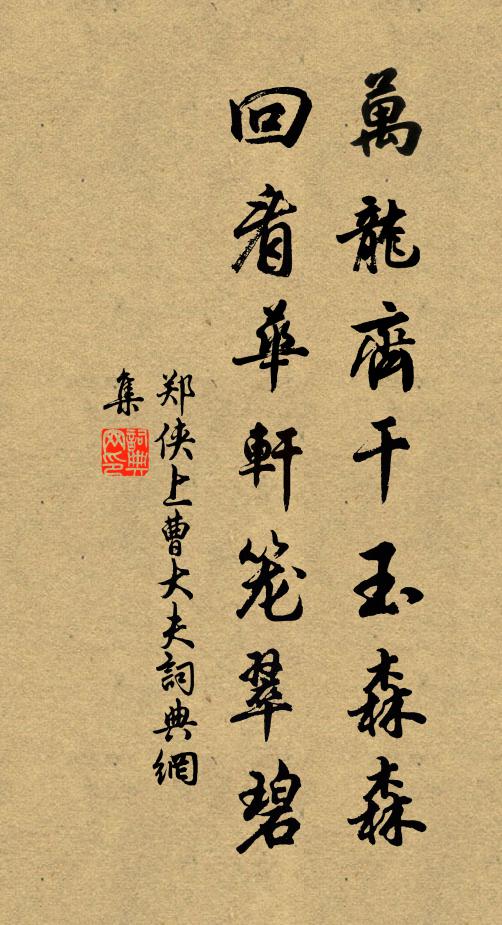 萬龍齊干玉森森
回看華軒笼翠碧
郑侠上曹大夫詞典網
集
詞典
网印